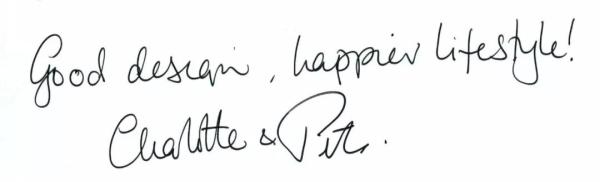 Good design, happier lifestyle!
Charlotte & Pete.